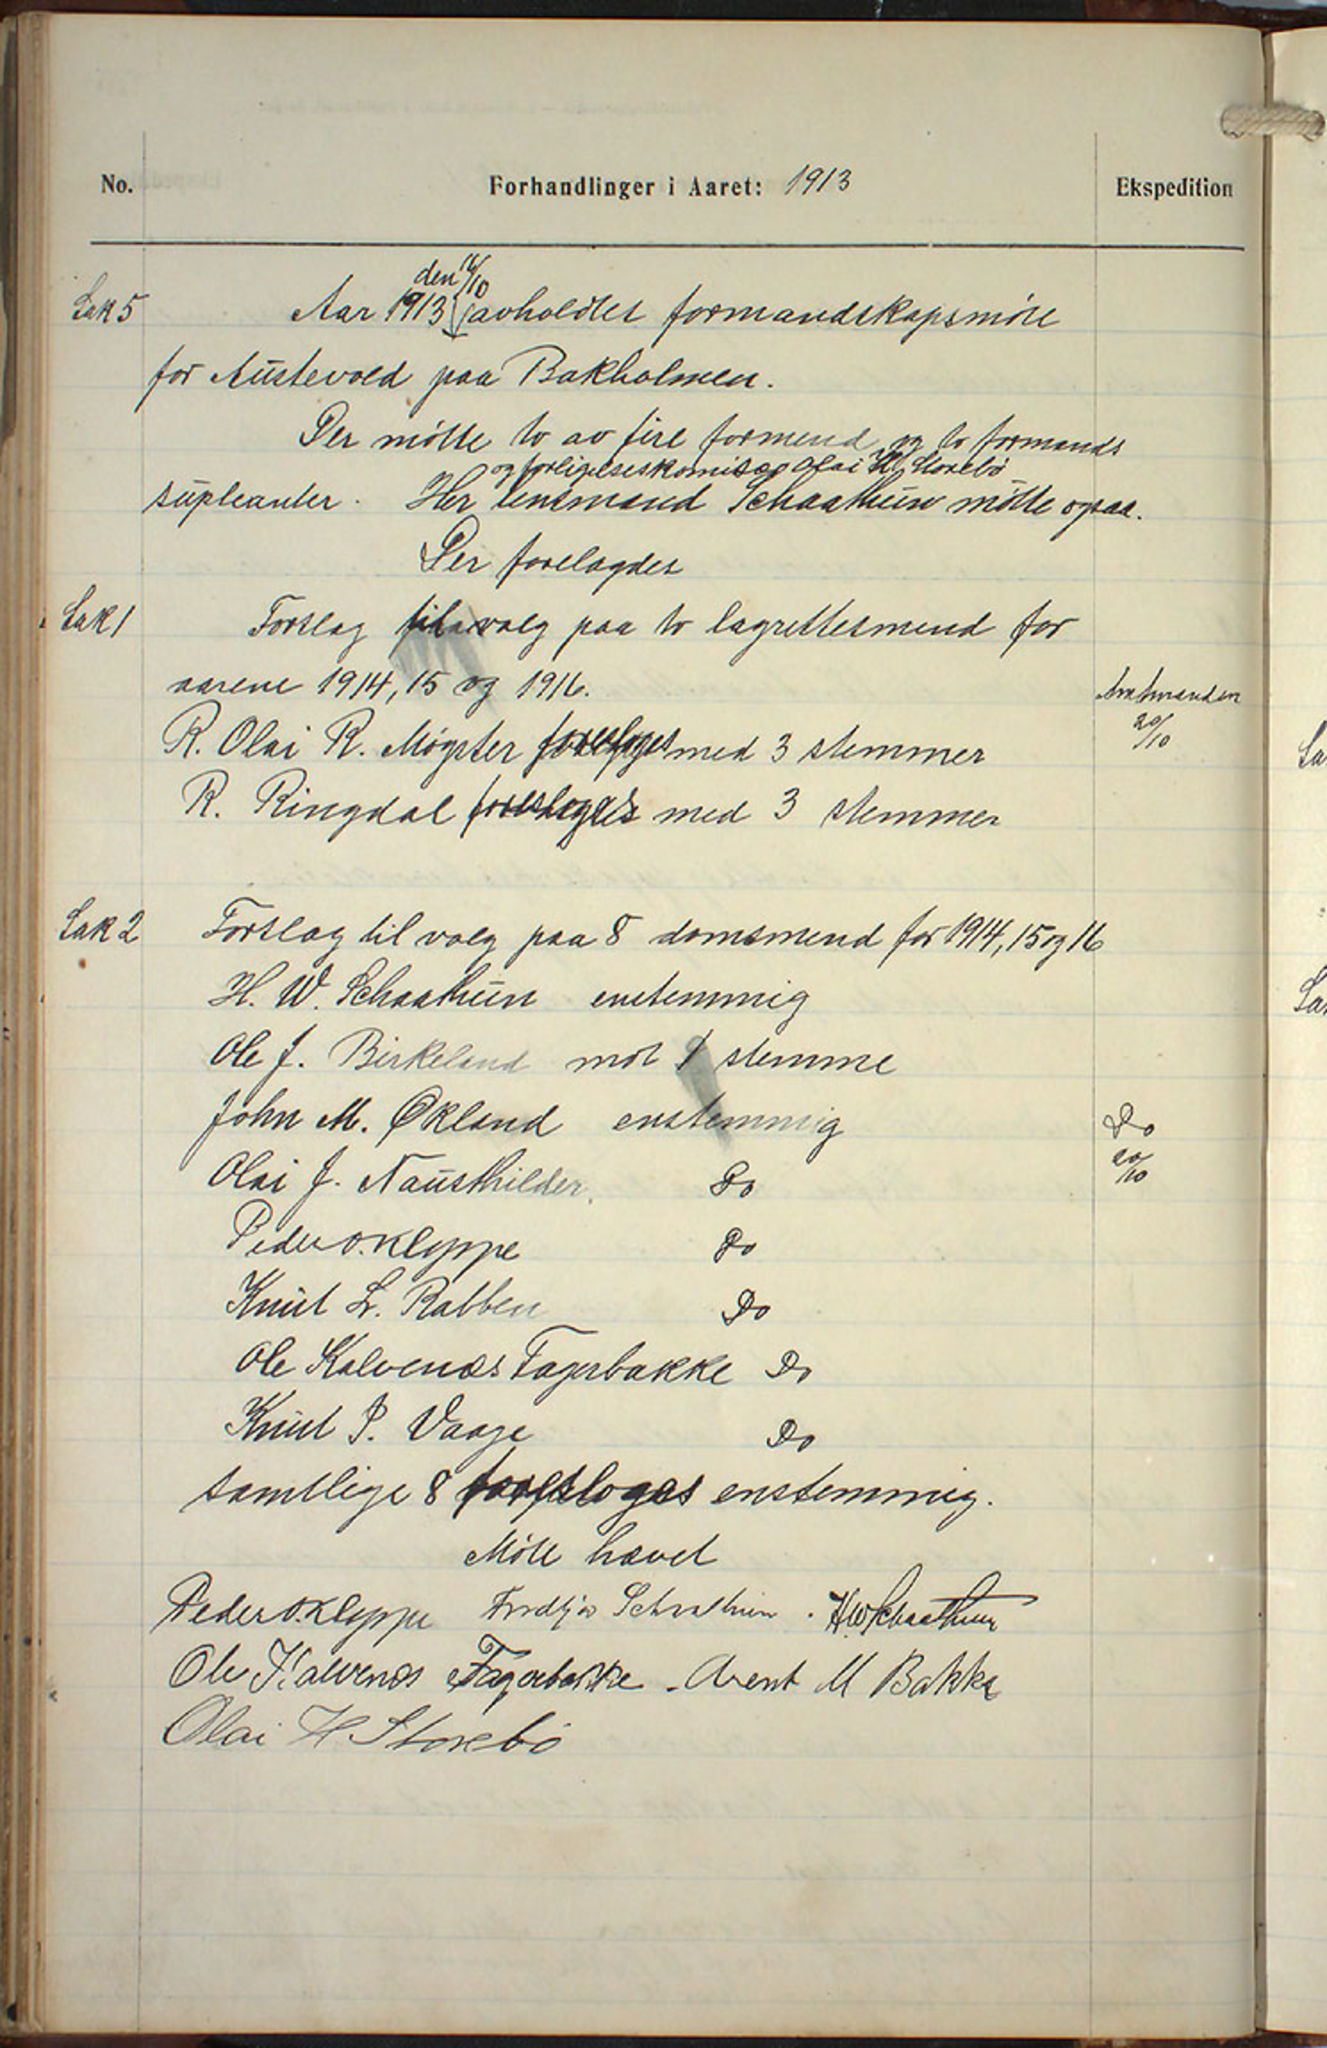 No. Forhandlinger i Aaret: 1913 Ekspedition
den 16/10
Sak 5 Aar 1913 avholdtes formandskapsmöte
for Austevold paa Bakholmen.
Der mötte to av fire formend og to formands
og forligelseskomisær Olai H. Storebö
supleanter. Her lensmand Schaathun mötte ogsaa.
Der forelagdes
Sak 1 Forslag til valg paa to lagrettesmend for
aarene 1914, 15 og 1916.
Amtmanden
R. Olai R. Møgster foresloges med 3 stemmer 20/10
R. Ringdal foresloges med 3 stemmer
Sak 2 Forslag til valg paa 8 domsmend for 1914, 15 og 16
H. W. Schaathun enstemmig
Ole J. Birkeland mot 1 stemme
John M. Økland enstemmig Do
Olai J. Nausthilder. Do 20/10
Peder O. Kleppe Do
Knut L. Rabben Do
Ole Kalvenæs Fagerbakke Do
Knut P. Vaage Do
samtlige 8 foresloges enstemmig.
Möte hævet
Peder O. Kleppe Fredtjov Schaathun . HWSchaathun
Ole Kalvenæs Fagerbakke . Arent M Bakke
Olai H Storebö
Sa
Sa